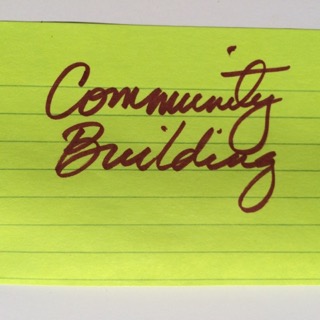 Community
Building